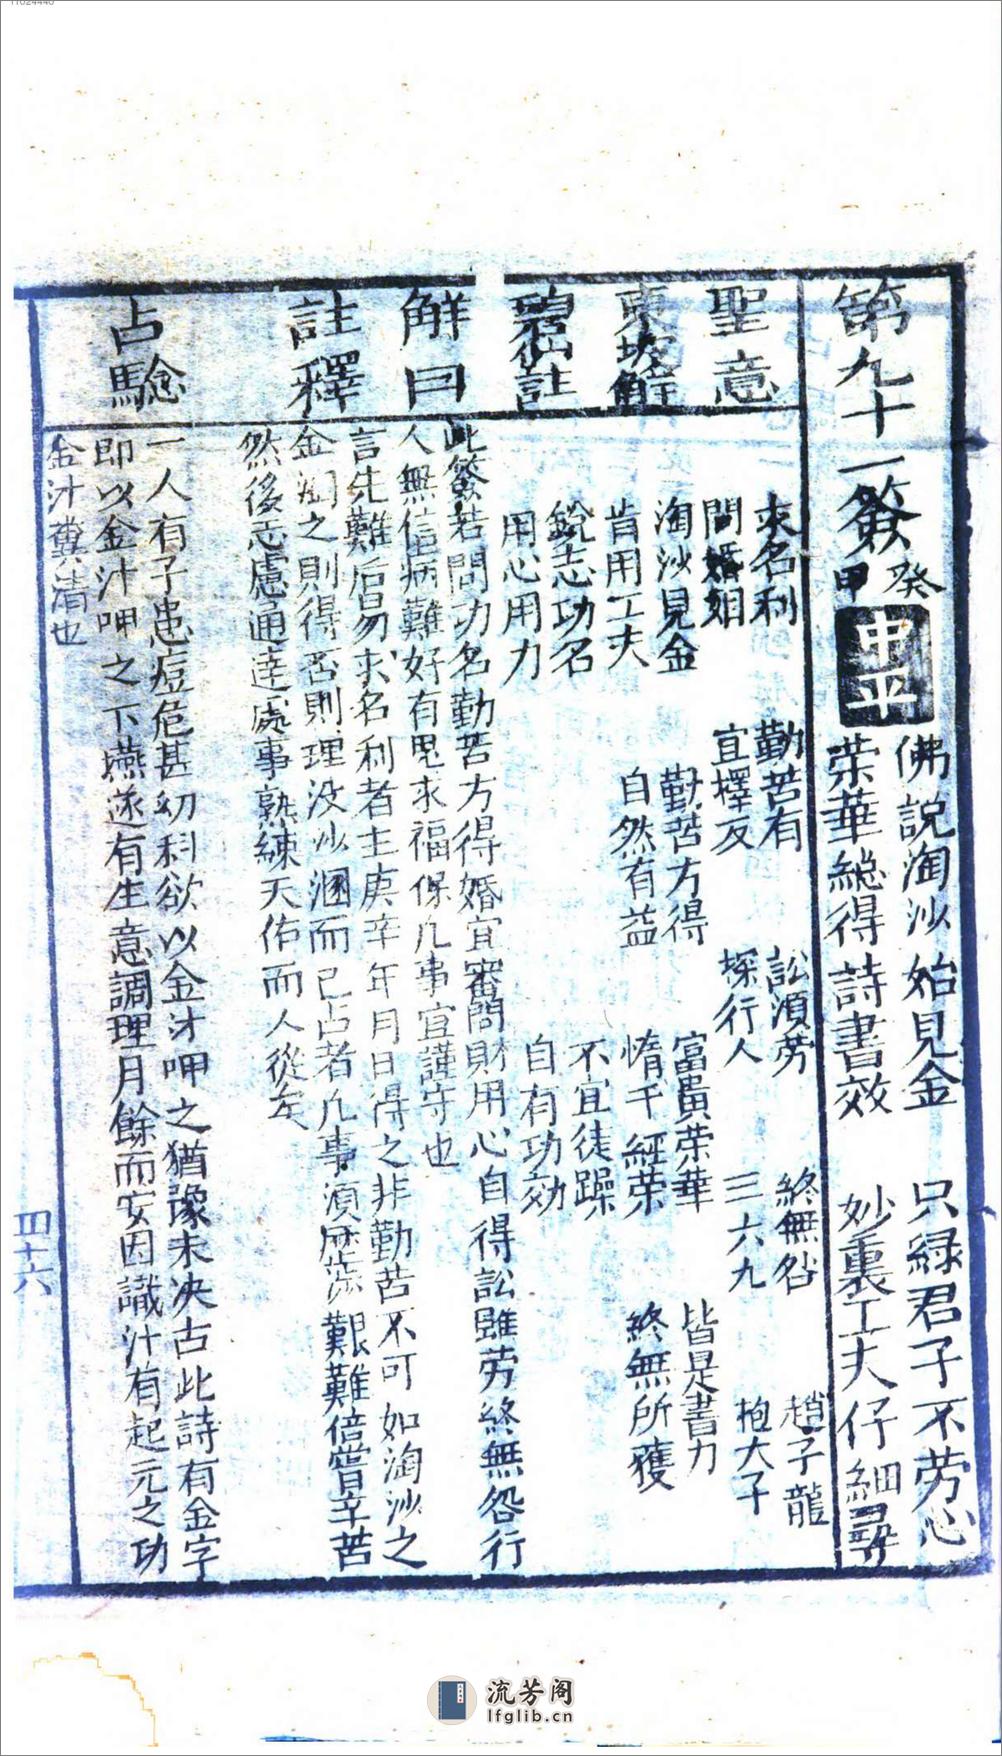 11024440
第九十一簽 癸甲 中平
佛說淘沙始見金 只緣君子不劳心
荣華總得詩書效 妙裏工夫仔細尋
聖意
求名利 勤苦有 訟湏劳 終無咎 趙子龍
問婚姻 宜擇友 探行人 三六九 抱太子
東坡解
淘沙見金 勤苦方得 富貴荣華 皆是書力
肯用工夫 自然有益 惰干 終無所獲
碧仙註
銳志功名 不宜徒躁
用心用力 自有功効
解曰
此簽若問功名勤苦方得婚宜審問財用心自得訟雖劳終無咎行
人無信病難好有鬼求福保凡事宜謹守也
註釋
言先難后易求名利者主庚辛年月日得之非勤苦不可如淘沙之
金淘之則得否則理没沙溷而已占者凡事湏歷涉艱難倍嘗辛苦
然後志慮通達處事熟練天佑而人從矣
占驗
一人有子患痘危甚幼科欲以金汁呷之猶豫未决占此詩有金字
即以金汁呷之下嚥遂有生意調理月餘而安因識汁有起元之功
金汁糞清也
四十六
流芳阁
lfglib.cn